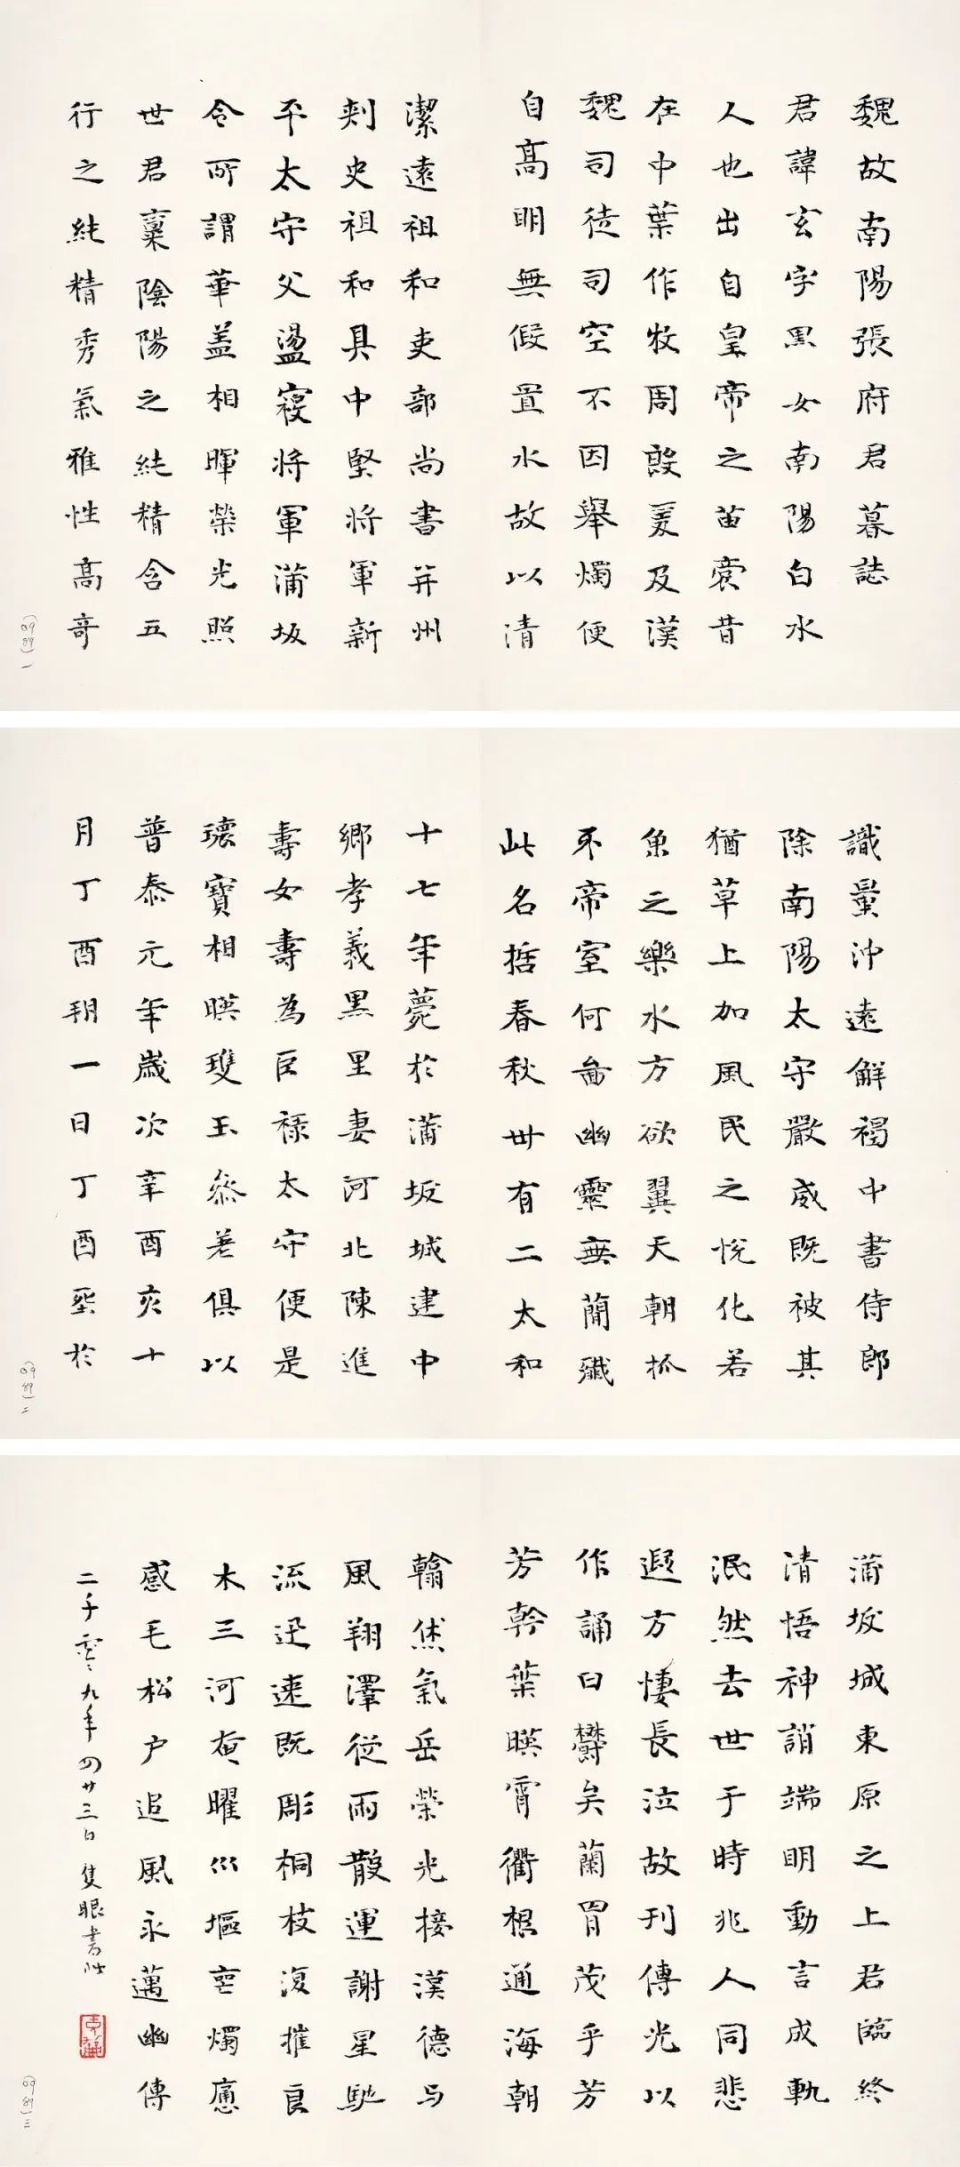 魏故南陽張府君暮誌
君諱玄字黑女南陽白水
人也出自皇帝之苗裔昔
在中葉作牧周殷爰及漢
魏司徒司空不因舉燭便
自高明無假置水故以清
潔遠祖和吏部尚書并州
刺史祖和具中堅將軍新
平太守父盪寇將軍蒲坂
令所謂華盖相暉榮光照
世君稟陰陽之純精含五
行之純精秀氣雅性高奇
識量沖遠解褐中書侍郎
除南陽太守嚴威既被其
猶草上加風民之悅化若
魚之樂水方欲翼天朝抓
不帝室何啚幽靈無簡殲
此名哲春秋卅有二太和
十七年薨於蒲坂城建中
鄉孝義黑里妻河北陳進
壽女壽為巨祿太守便是
瓌寶相暎雙玉叅差俱以
普泰元年歲次辛酉亥十
月丁酉朔一日丁酉塟於
蒲坂城東原之上君臨終
清悟神誚端明動言成軌
泯然去世于時兆人同悲
遐方悽長泣故刊傳光以
作誦曰欝矣蘭胃茂乎芳
芳幹葉暎霄衢根通海朝
翰烋氣岳榮光接漢德与
風翔澤從雨散運謝星馳
流迅速既彫桐枝復摧良
木三河奄曜巛堰空燭慝
感毛松户追風永邁幽傳
二千零九年四廿三日隻眼書